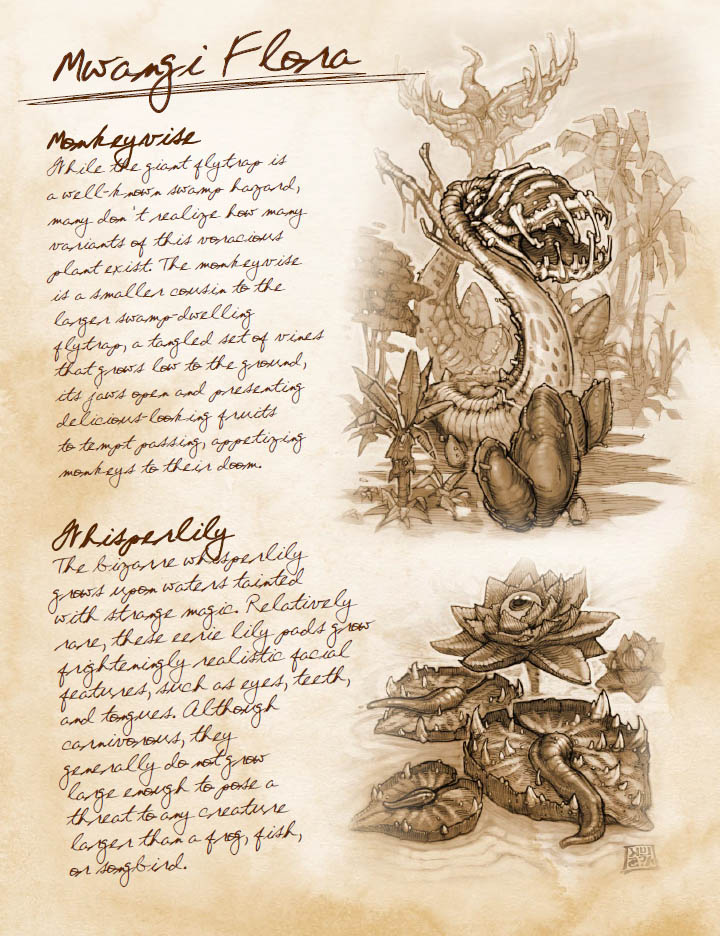 Mwangi Flora
Monkeyvise
While the giant flytrap is
a well-known swamp hazard,
many don't realize how many
variants of this voracious
plant exist. The monkeyvise
is a smaller cousin to the
larger swamp-dwelling
flytrap, a tangled set of vines
that grows low to the ground,
its jaws open and presenting
delicious-looking fruits
to tempt passing, appetizing
monkeys to their doom.
Whisperlily
The bizarre whisperlily
grows upon waters tainted
with strange magic. Relatively
rare, these eerie lily pads grow
frighteningly realistic facial
features, such as eyes, teeth,
and tongues. Although
carnivorous, they
generally do not grow
large enough to pose a
threat to any creature
larger than a frog, fish,
or songbird.